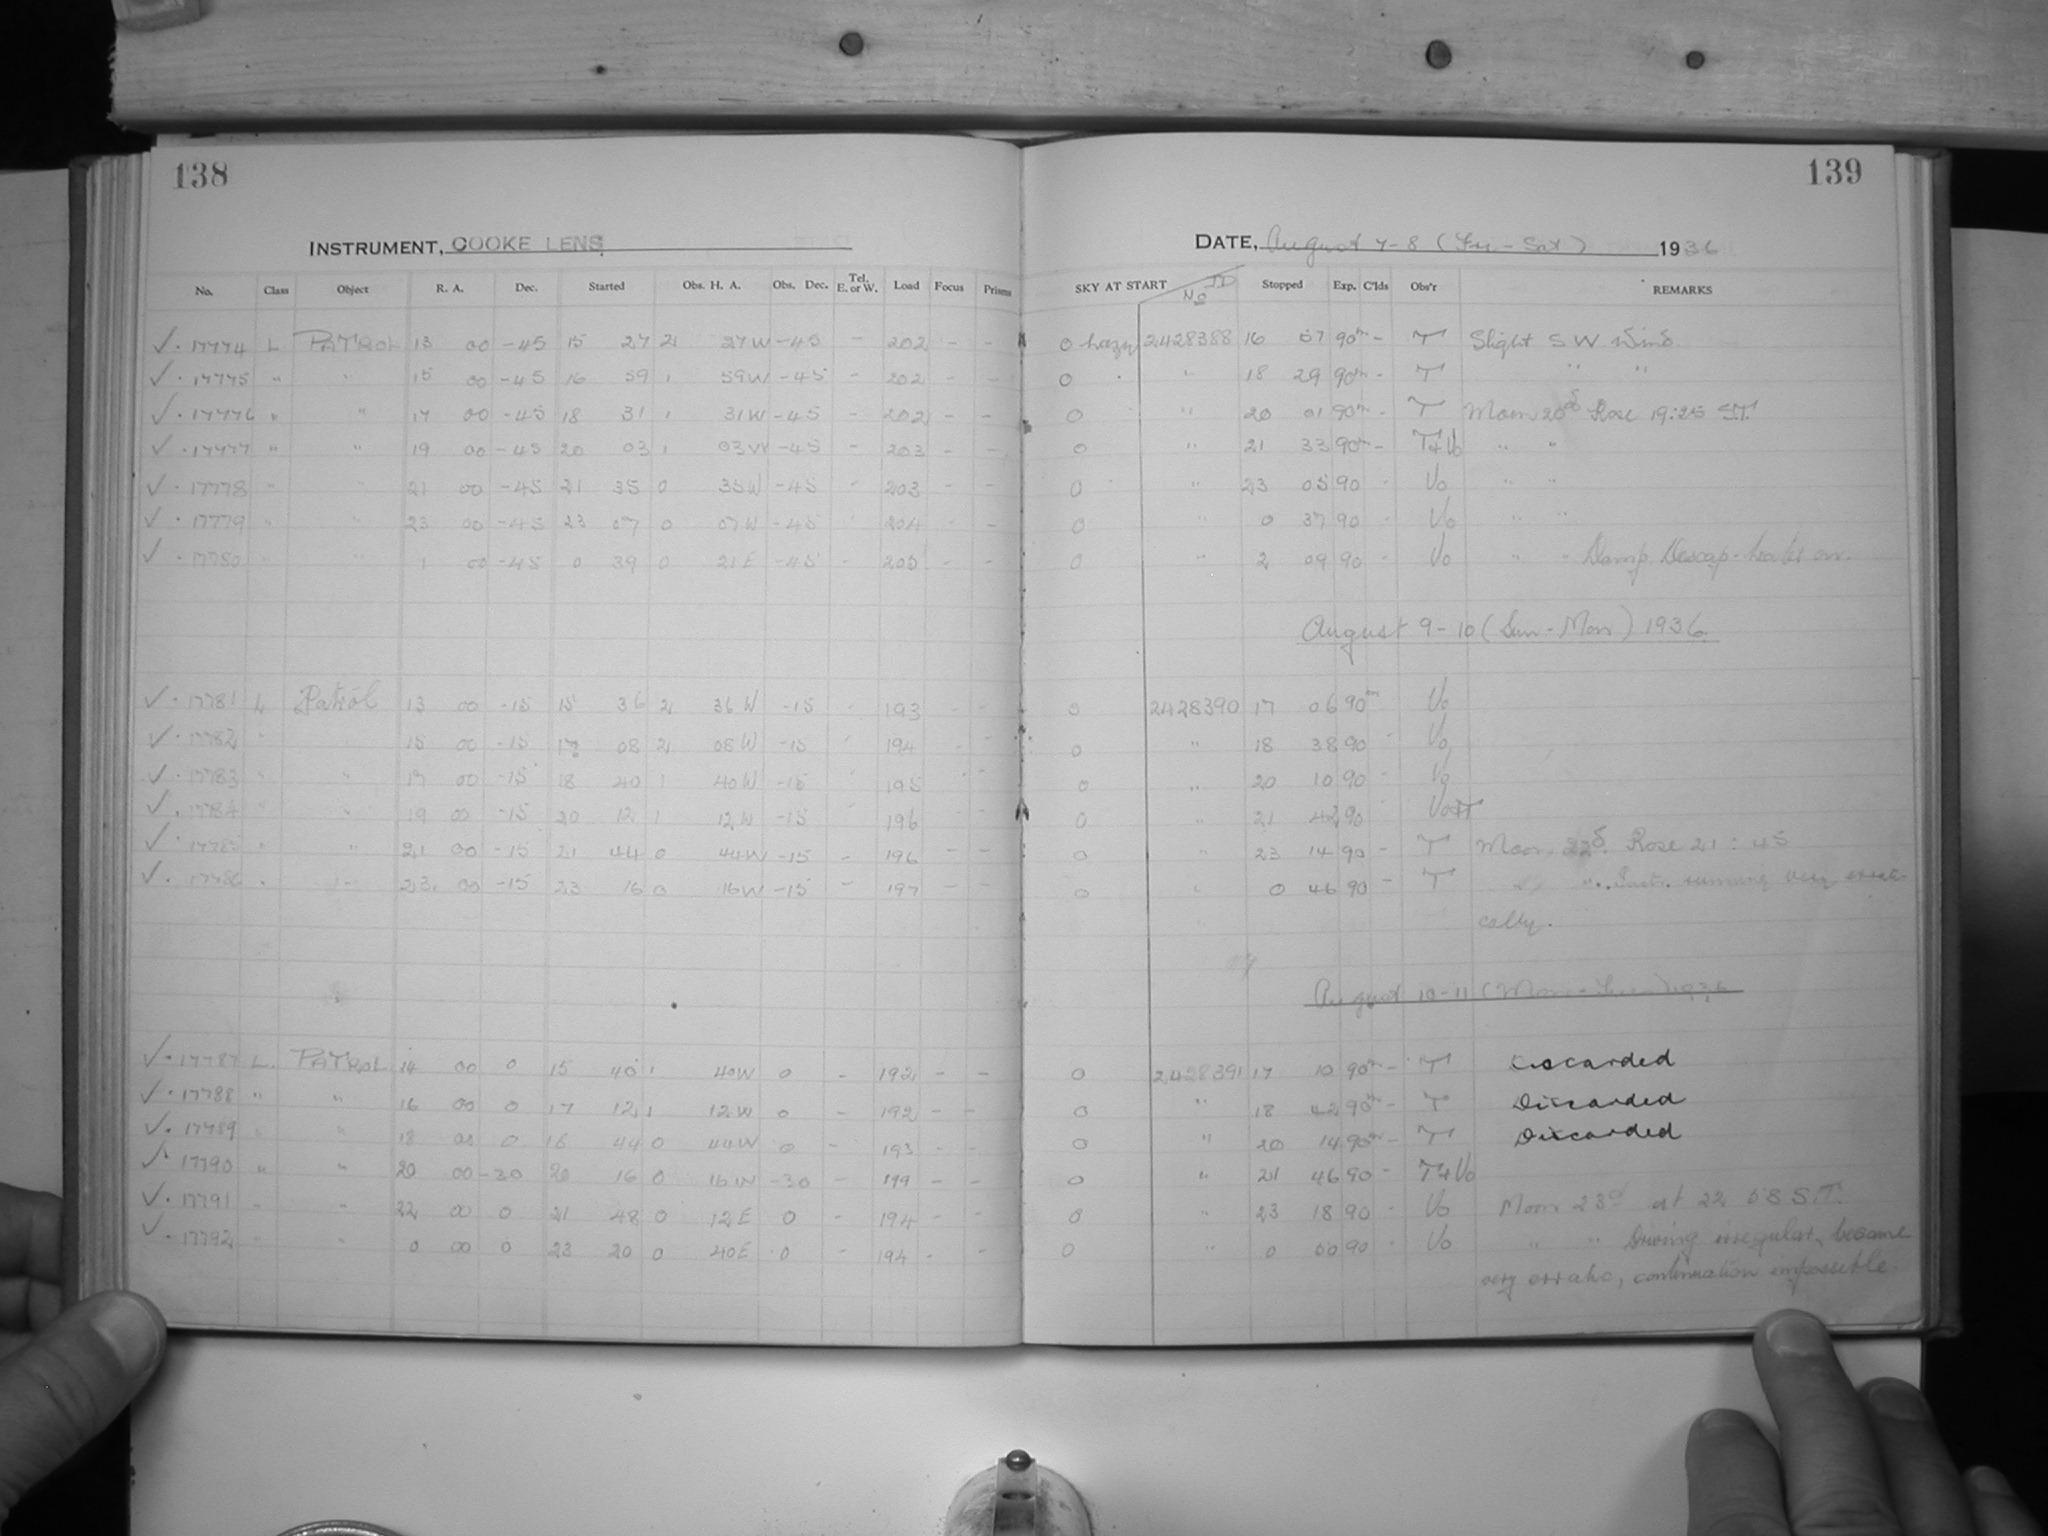 138
INSTRUMENT, COOKE LENS
No. Class Object R. A. Dec. Started Obs. H. A. Obs. Dec. Tel. E. or W. Load Focus Prisms
✓ · 17774 L PATROL 13 00 -45 15 27 2 27W -45 - 202 - -
✓ · 17775 " " 15 00 -45 16 59 1 59W -45 - 202 - -
✓ · 17776 " " 17 00 -45 18 31 1 31W -45 - 202 - -
✓ · 17777 " " 19 00 -45 20 03 1 03W -45 - 203 - -
✓ · 17778 " " 21 00 -45 21 35 0 35W -45 - 203 - -
✓ · 17779 " " 23 00 -45 23 07 0 07W -45 - 204 - -
✓ · 17780 " " 1 00 -45 0 39 0 21E -45 - 205 - -
✓ · 17781 L Patrol 13 00 -15 15 36 2 36W -15 - 193 - -
✓ · 17782 " 15 00 -15 17 08 2 08W -15 - 194 - -
✓ · 17783 " " 17 00 -15 18 40 1 40W -15 - 195 - -
✓ · 17784 " " 19 00 -15 20 12 1 12W -15 - 196 - -
✓ · 17785 " " 21 00 -15 21 44 0 44W -15 - 196 - -
✓ · 17786 " " 23 00 -15 23 16 0 16W -15 - 197 - -
✓ · 17787 L. PATROL 14 00 0 15 40 1 40W 0 - 192 - -
✓ · 17788 " " 16 00 0 17 12 1 12W 0 - 192 - -
✓ · 17789 " " 18 00 0 18 44 0 44W 0 - 193 - -
✓ · 17790 " " 20 00 -30 20 16 0 16W -30 - 199 - -
✓ · 17791 " " 22 00 0 21 48 0 12E 0 - 194 - -
✓ · 17792 " " 0 00 0 23 20 0 40E 0 - 194 - -
139
DATE, August 7-8 (Fri - Sat) 1936
SKY AT START No JD Stopped Exp. C'lds Obs'r REMARKS
0 hazy 2428388 16 57 90m - T Slight SW Wind
0 " 18 29 90m - T " "
0 " 20 01 90m - T Moon 20d Rose 19:25 S.T.
0 " 21 33 90m - T+Vo " "
0 " 23 05 90 - Vo " "
0 " 0 37 90 - Vo " "
0 " 2 09 90 - Vo " " Damp. Dewcap-heater on.
August 9-10 (Sun - Mon) 1936.
0 2428390 17 06 90m Vo
0 " 18 38 90 - Vo
0 " 20 10 90 - Vo
0 " 21 42 90 Vo+T
0 " 23 14 90 - T Moon 22d. Rose 21:45
0 " 0 46 90 - T " " running very errati-
cally.
August 10-11 (Mon - Tues) 1936
0 2428391 17 10 90m - T Discarded
0 " 18 42 90m - T Discarded
0 " 20 14 90m - T Discarded
0 " 21 46 90 - T+Vo
0 " 23 18 90 - Vo Moon 23d at 22 58 S.T.
0 " 0 50 90 - Vo " " Driving irregular, became
very erratic, continuation impossible.